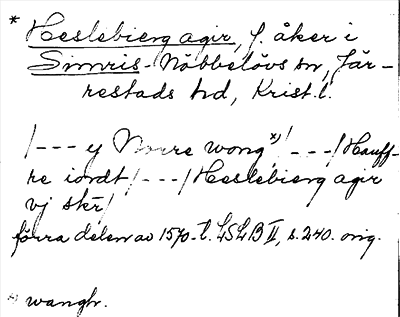 * Heslebierg agir, f. åker i
Simris-Nöbbelövs sn, Jär-
restads hd, Krist.l.
/--- y Norre wong x)/ ---/Hauff-
re iordt/---/Heslebierg agir
vj skr/
förra delen av 1570-t. LSLB II, s. 240. orig.
x) wangh.